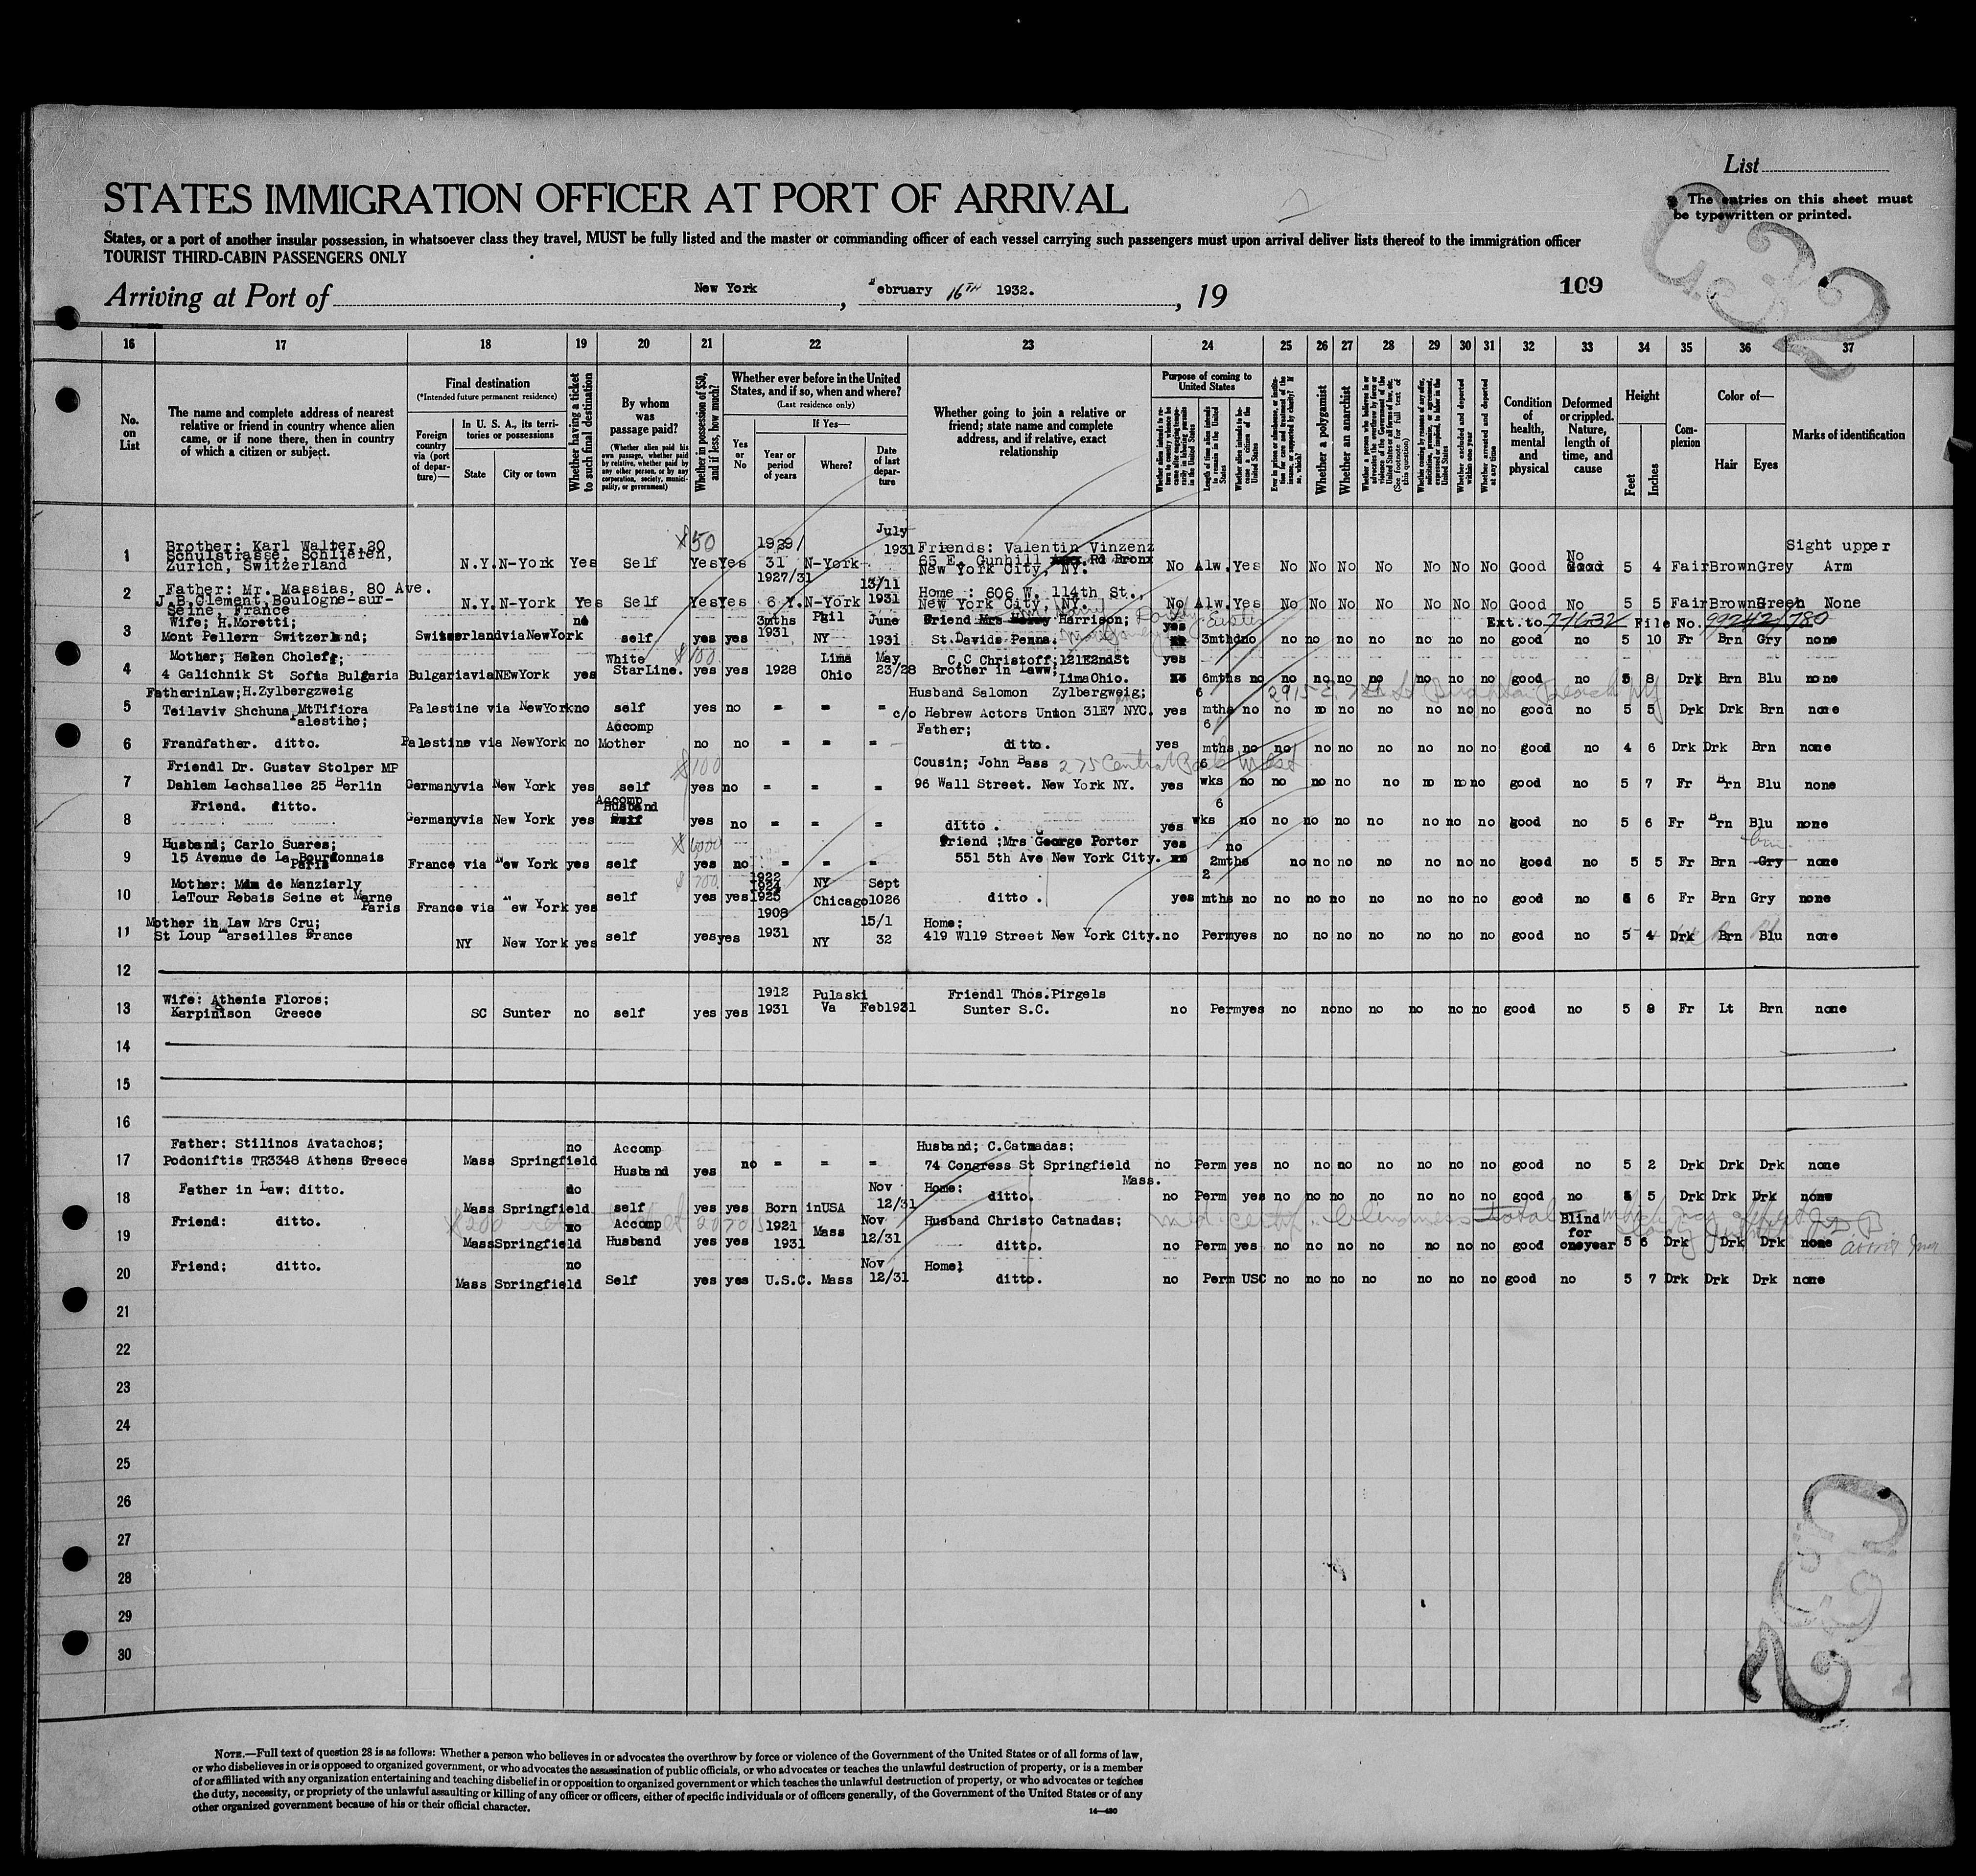 List
STATES IMMIGRATION OFFICER AT PORT OF ARRIVAL
The entries on this sheet must
be typewritten or printed.
States, or a port of another insular possession, in whatsoever class they travel, MUST be fully listed and the master or commanding officer of each vessel carrying such passengers must upon arrival deliver lists thereof to the immigration officer
TOURIST THIRD-CABIN PASSENGERS ONLY
Arriving at Port of New York, February 16TH 1932. , 19
109
16 17 18 19 20 21 22 23 24 25 26 27 28 29 30 31 32 33 34 35 36 37
No. on List
The name and complete address of nearest relative or friend in country whence alien came, or if none there, then in country of which a citizen or subject.
Final destination
(*Intended future permanent residence)
Foreign country via (port of departure)—
In U. S. A., its territories or possessions
State
City or town
Whether having a ticket to such final destination
By whom was passage paid?
(Whether alien paid his own passage, whether paid by relative, whether paid by any other person, or by any corporation, society, municipality, or government)
Whether in possession of $50, and if less, how much?
Whether ever before in the United States, and if so, when and where?
(Last residence only)
Yes or No
If Yes—
Year or period of years
Where?
Date of last departure
Whether going to join a relative or friend; state name and complete address, and if relative, exact relationship
Purpose of coming to United States
Length of time alien intends to remain in the United States
Whether alien intends to become a citizen of the United States
Whether a polygamist
Whether an anarchist
Whether excluded and deported within one year
Whether arrested and deported at any time
Condition of health, mental and physical
Deformed or crippled. Nature, length of time, and cause
Height
Feet
Inches
Complexion
Color of—
Hair
Eyes
Marks of identification
1 Brother: Karl Walter, 20
Schulstrasse, Schlieren,
Zurich, Switzerland N.Y. N-York Yes Self $50 Yes Yes 1929/ 31 N-York July 1931 Friends: Valentin Vinzenz
65 E. Gunhill Rd Bronx
New York City, NY. No Alw. Yes No No No No No No No Good No 5 4 Fair Brown Grey Sight upper Arm
2 Father: Mr. Massias, 80 Ave.
J.B.Clement, Boulogne-sur-
Seine, France N.Y. N-York Yes Self Yes Yes 1927/31 6 Y. N-York 13/11 1931 Home : 606 W. 114th St.,
New York City, NY. No Alw. Yes No No No No No No No Good No 5 5 Fair Brown Green None
Ext.to 77632 File No. 99242/780
3 Wife; H.Moretti;
Mont Pellern Switzerland; Switzerland via New York no self yes yes 3mths 1931 NY June 1931 Friend Mrs Harrison;
St.Davids Penna. yes 3mths no no no no no no no no good no 5 10 Fr Brn Gry none
4 Mother; Helen Choleff;
4 Galichnik St Sofia Bulgaria Bulgaria via NEwYork yes White StarLine. $100 yes yes 1928 Lima Ohio May 23/28 C.C Christoff; 121E2ndSt
Brother in Laww; LimaOhio. yes 6mths no no no no no no no no good no 5 8 Drk Brn Blu none
5 FatherinLaw; H.Zylbergzweig
Teilaviv Shchuna MtTifiora
Palestine; Palestine via NewYork no self yes no - - - Husband Salomon Zylbergweig;
c/o Hebrew Actors Union 31E7 NYC. yes 6 mths no no no no no no no no good no 5 5 Drk Drk Brn none
6 Frandfather. ditto. Palestine via NewYork no Accomp Mother no no - - - Father;
ditto. yes 6 mths no no no no no no no no good no 4 6 Drk Drk Brn none
7 Friendl Dr. Gustav Stolper MP
Dahlem Lachsallee 25 Berlin Germanyvia New York yes self $100 yes no - - - Cousin; John Bass 275 Central Park West
96 Wall Street. New York NY. yes 6 wks no no no no no no no no good no 5 7 Fr Brn Blu none
8 Friend. ditto. Germanyvia New York yes Accomp Husband yes no - - - ditto . yes 6 wks no no no no no no no no good no 5 6 Fr Brn Blu none
9 Husband; Carlo Suares;
15 Avenue de La Bourdonnais
Paris France via New York yes self $1000 yes no - - - Friend ;Mrs George Porter
551 5th Ave New York City. yes 2mths no no no no no no no no good no 5 5 Fr Brn Gry none
10 Mother: Mdm de Manziarly
LeTour Rebais Seine et Marne
Paris France via New York yes self $ 700 yes yes 1922 1924 1925 NY Chicago Sept 1026 ditto . yes 2 mths no no no no no no no no good no 5 6 Fr Brn Gry none
11 Mother in Law Mrs Cru;
St Loup Marseilles France NY New York yes self yes yes 1908 1931 NY 15/1 32 Home;
419 W119 Street New York City. no Perm yes no no no no no no no good no 5 4 Drk Brn Blu none
12
13 Wife: Athenia Floros;
Karpinison Greece SC Sunter no self yes yes 1912 1931 Pulaski Va Feb1931 Friendl Thos.Pirgels
Sunter S.C. no Perm yes no no no no no no no good no 5 8 Fr Lt Brn none
14
15
16
17 Father: Stilinos Avatachos;
Podoniftis TR3348 Athens Greece Mass Springfield no Accomp Husband yes no - - - Husband; C.Catnadas;
74 Congress St Springfield
Mass. no Perm yes no no no no no no no good no 5 2 Drk Drk Drk none
18 Father in Law; ditto. Mass Springfield no self yes yes Born inUSA Nov 12/31 Home;
ditto. no Perm yes no no no no no no no good no 5 5 Drk Drk Drk none
19 Friend: ditto. Mass Springfield no Accomp Husband yes yes 1921 1931 Mass Nov 12/31 Husband Christo Catnadas;
ditto. no Perm yes no no no no no no no good Blind for oneyear 5 6 Drk Drk Drk none
med. certif. blindness total
20 Friend; ditto. Mass Springfield no Self yes yes U.S.C. Mass Nov 12/31 Home;
ditto. no Perm USC no no no no no no no good no 5 7 Drk Drk Drk none
21
22
23
24
25
26
27
28
29
30
NOTE.—Full text of question 28 is as follows: Whether a person who believes in or advocates the overthrow by force or violence of the Government of the United States or of all forms of law,
or who disbelieves in or is opposed to organized government, or who advocates the assassination of public officials, or who advocates or teaches the unlawful destruction of property, or is a member
of or affiliated with any organization entertaining and teaching disbelief in or opposition to organized government or which teaches the unlawful destruction of property, or who advocates or teaches
the duty, necessity, or propriety of the unlawful assaulting or killing of any officer or officers, either of specific individuals or of officers generally, of the Government of the United States or of any
other organized government because of his or their official character.
14—480